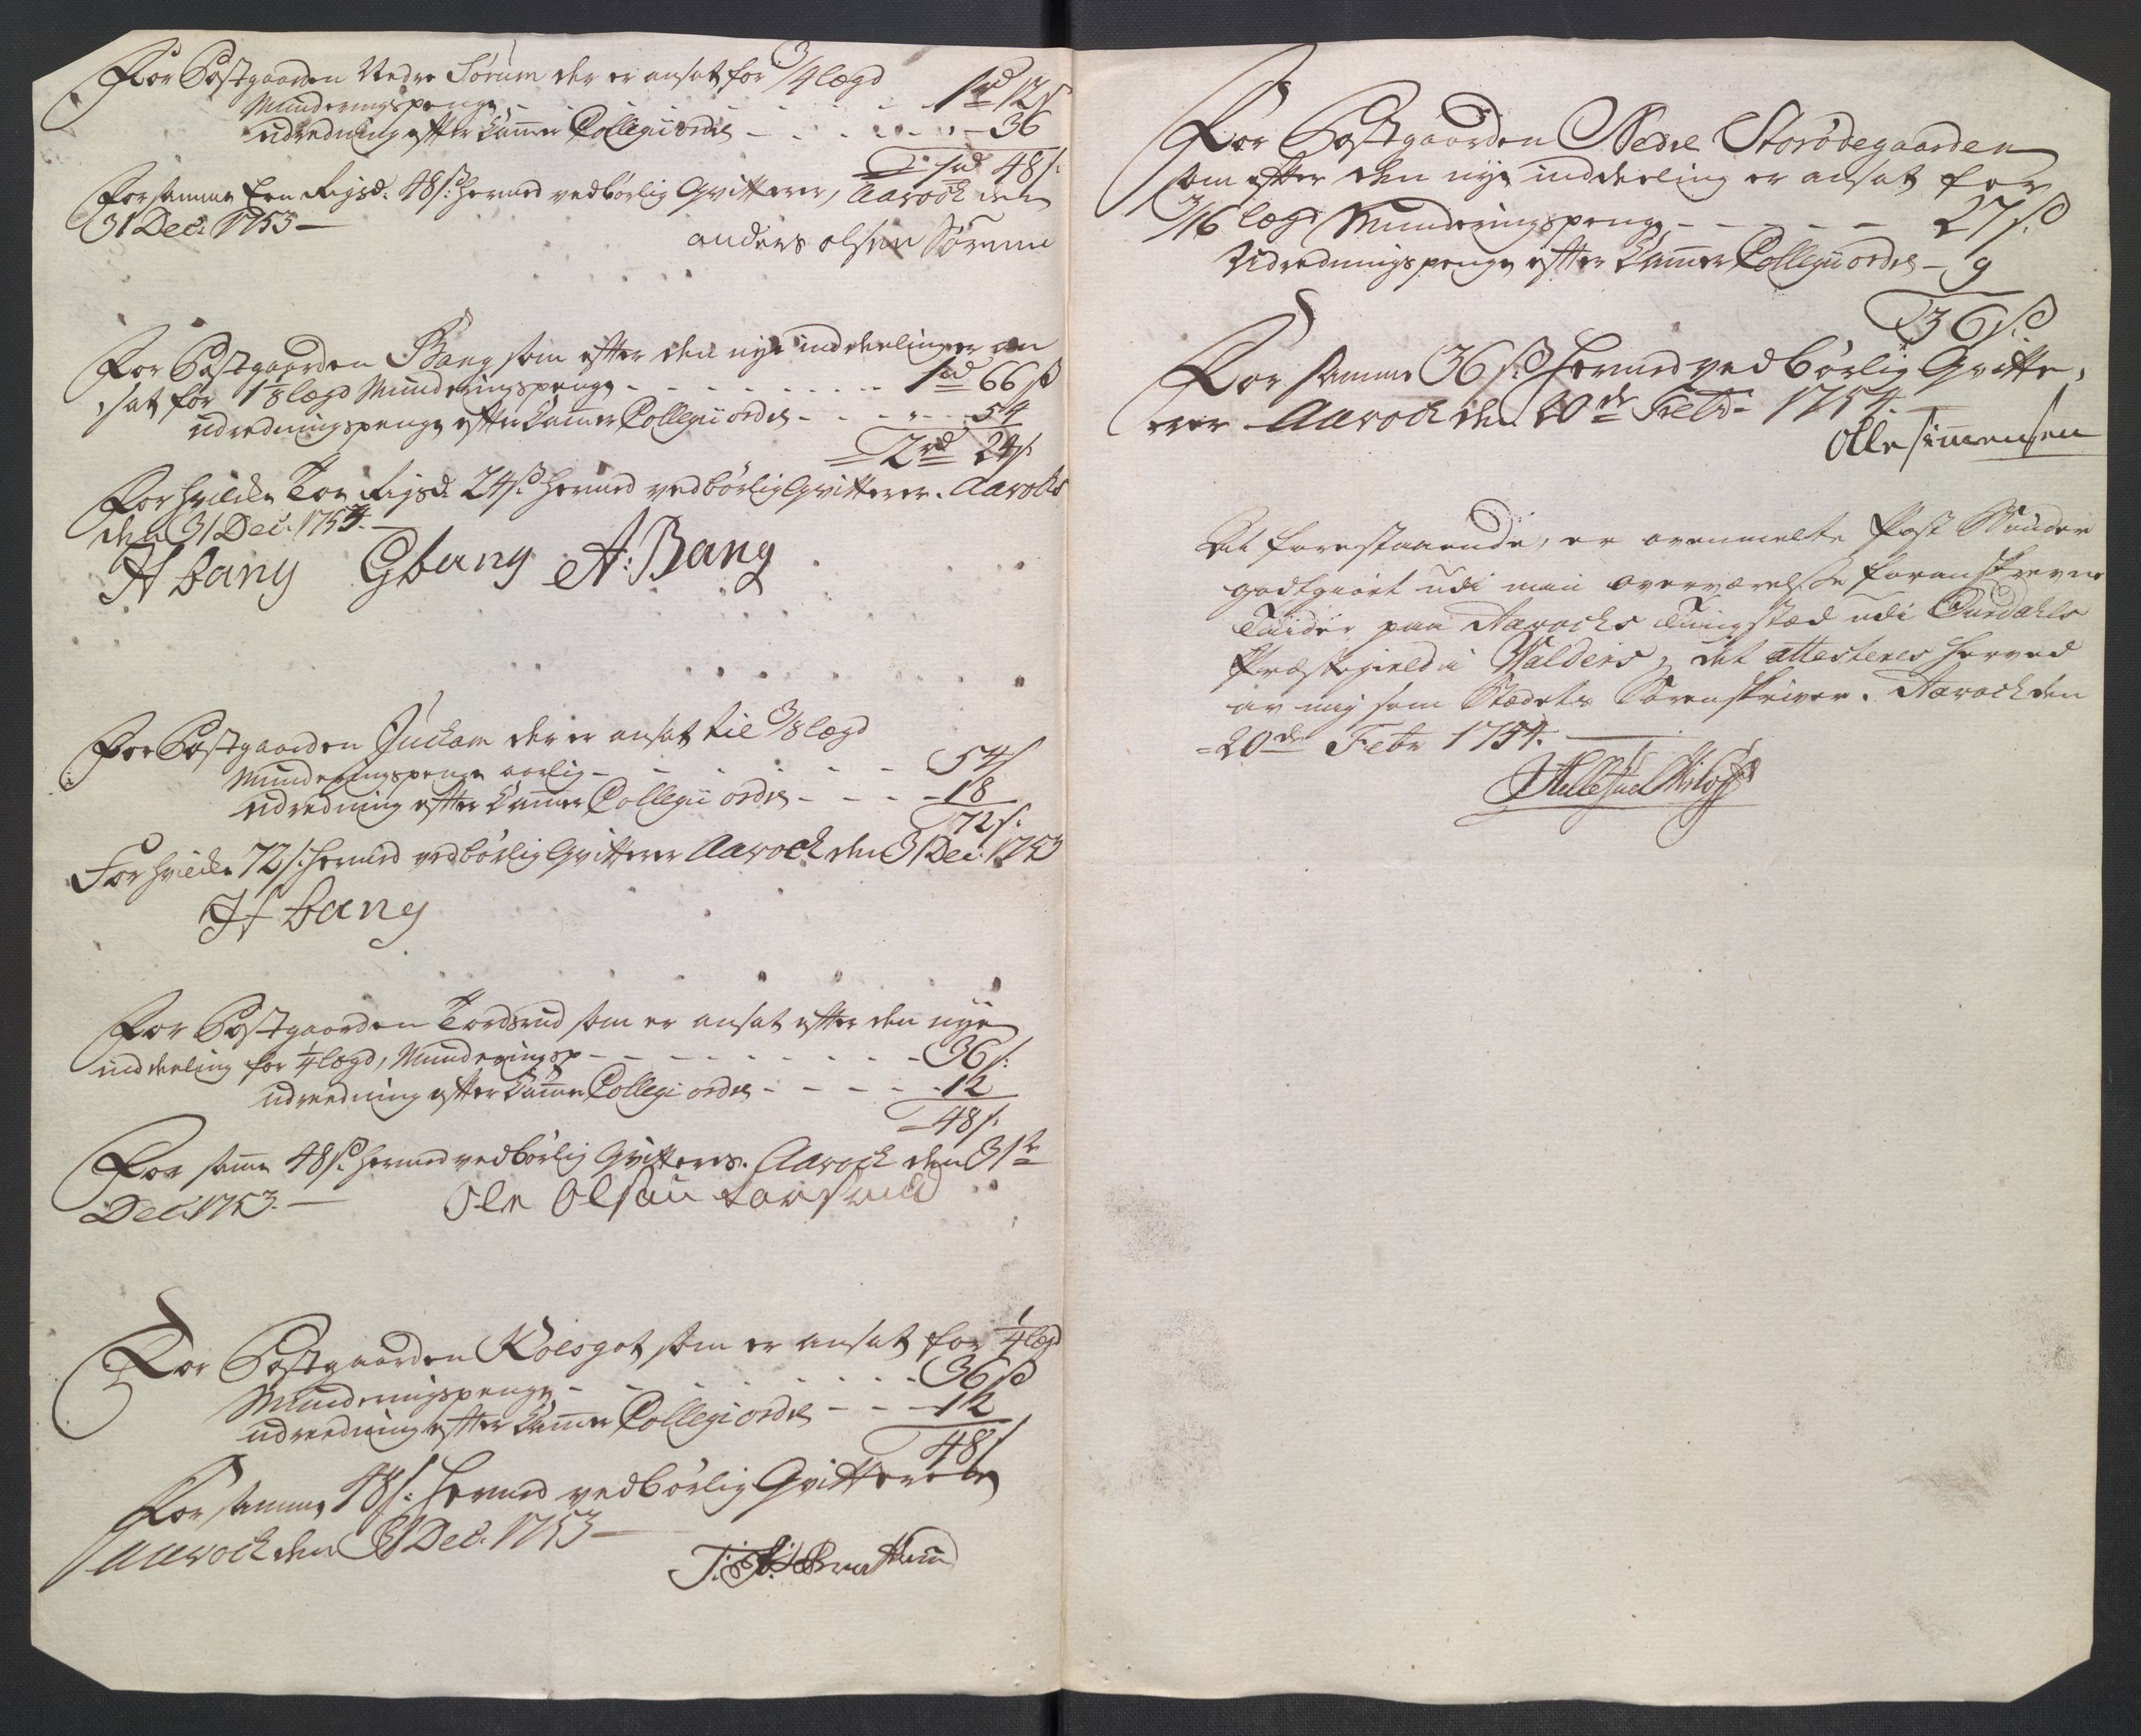 For Postgaarden Nedre Sørum der er ansat for 3/4 lægd
Munderingspenge - - - - - - - 1 rd 12 s
udredning efter Cammer Collegii ordre - - - - - 36
1 rd 48 s.
For samme Een Rigsd. 48 s. hermed vedbørlig Qvitterer, Aarock den
31 Dec: 1753 —
anders olsen Sørum
For Postgaarden Bang som efter den nye inddeeling er an
sat for 1 1/8 lægd Munderingspenge - - - - - - - 1 rd 66 s
udredningspenge efter Cammer Collegii ordre - - - - 54
2 rd 24 s.
For hvilcke Toe Rigsd. 24 s. hermed vedbørlig Qvitterer. Aarock
den 31 Dec. 1753. —
H bang G bang A: Bang
For Postgaarden Juckam der er ansat til 3/8 lægd
Munderingspenge aarlig - - - - - - 54 s
udredning efter Cammer Collegii ordre - - - - 18
72 s.
For hvilcke 72 s. hermed vedbørlig Qvitterer Aarock den 31 Dec. 1753
H bang
For Postgaarden Tordsrud som er ansat efter den nye
inddeeling for 1/4 lægd, Munderingsp - - - - - - - - 36 s.
udreedning efter Cammer Collegi ordre - - - - - 12
48 s.
For samme 48 s. hermed vedbørlig Qvitteres. Aarock den 31te
Dec. 1753. — Ole Olsøn
For Postgaarden Kolsgot som er ansat for 1/4 lægd
Munderingspenge - - - - - - - 36 s
udreedning efter Cammer Collegi ordre - - - 12
48 s
For samme 48 s. hermed vedbørlig Qvitterer
Aarock den 31 Dec. 1753 —
For Postgaarden Nedre Storødegaarden
som efter den nye inddeeling er ansat for
3/16 lægd Munderingspenge - - - - - 27 s.
Udredningspenge efter Cammer Collegii ordre - 9
36 s.
For samme 36 s. hermed vedbørlig Qvitte,
rer Aarock den 20de Febr - 1754. —
Olle simensen
At forestaaende, er ovenmelte Post Bønder
godtgiort udi min overværelse foranskrevne
Tiider paa Aarocks Tingstæd udi Aurdahls
Præstegield i Walders; det attesteres herved
av mig som Stædets Sorenskriver. Aarock den
20de Febr 1754. —